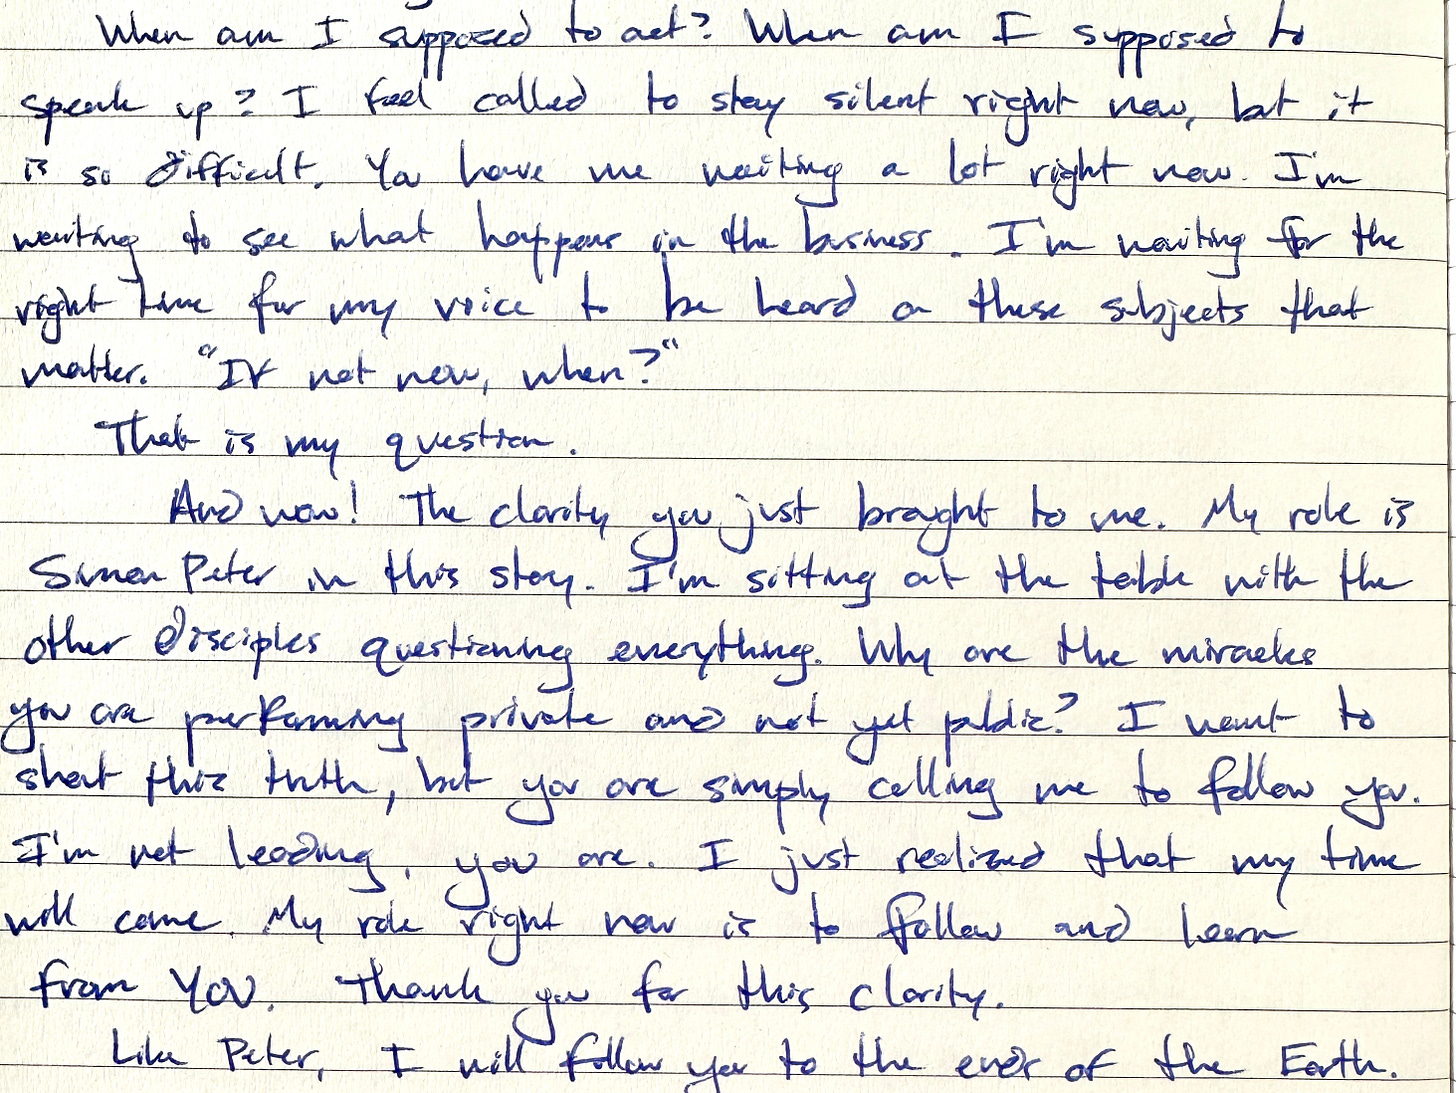 When am I supposed to act? When am I supposed to
speak up? I feel called to stay silent right now, but it
is so difficult. You have me waiting a lot right now. I'm
waiting to see what happens in the business. I'm waiting for the
right time for my voice to be heard on these subjects that
matter. "If not now, when?"
That is my question.
And wow! The clarity you just brought to me. My role is
Simon Peter in this story. I'm sitting at the table with the
other disciples questioning everything. Why are the miracles
you are performing private and not yet public? I want to
shout this truth, but you are simply calling me to follow you.
I'm not leading, you are. I just realized that my time
will come. My role right now is to follow and learn
from YOU. Thank you for this clarity.
Like Peter, I will follow you to the ends of the Earth.